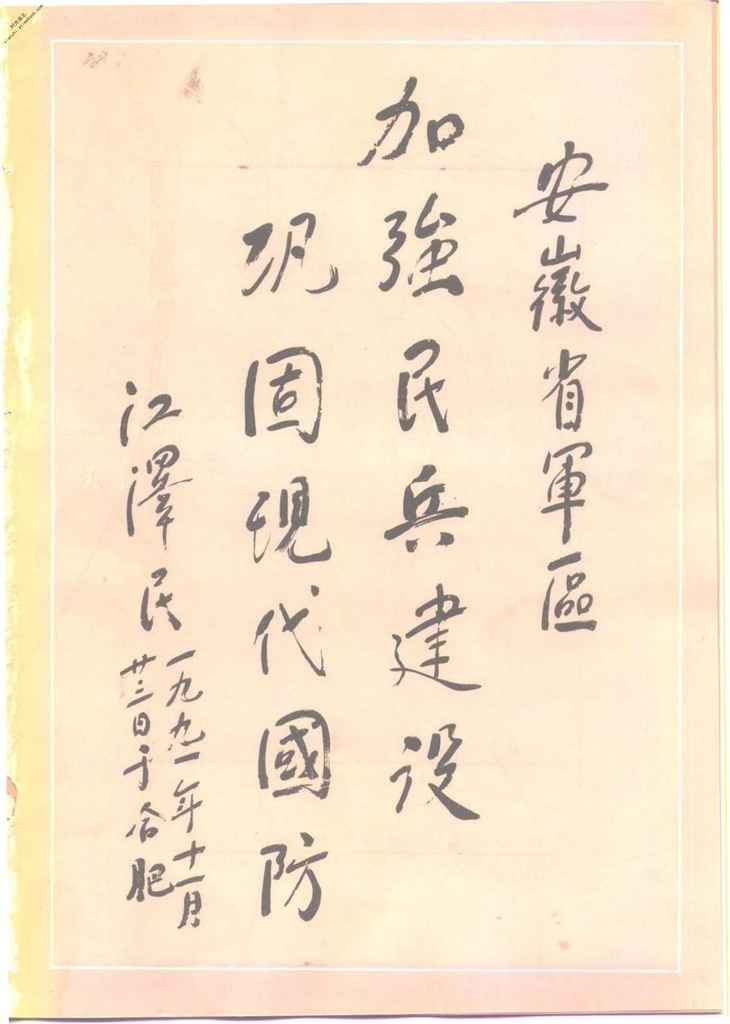 安徽省軍區
加強民兵建设
巩固現代國防
江澤民
一九九一年十一月
廿三日于合肥